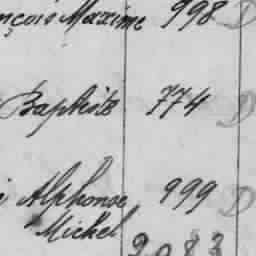 nçois Maxime 998 D
Baptiste 774 D
i Alphonse 999 D
Mickel
2083